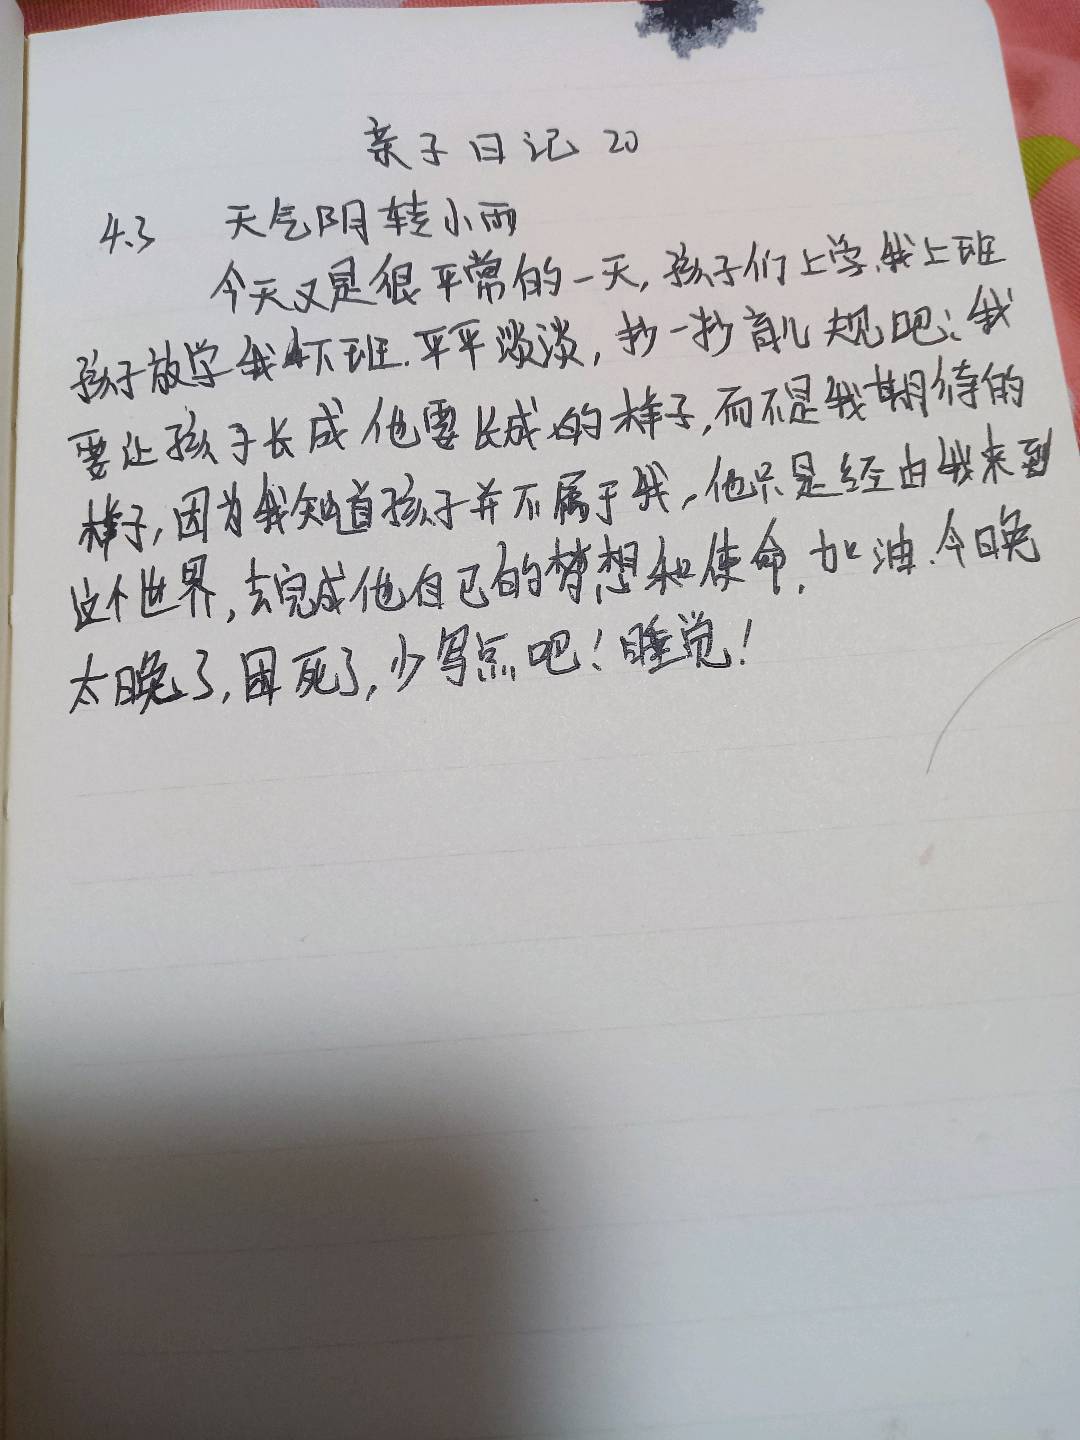 亲子日记 20
4.3 天气阴转小雨
今天又是很平常的一天,孩子们上学,我上班
孩子放学我下班.平平淡淡,抄一抄育儿规吧:我
要让孩子长成他要长成的样子,而不是我期待的
样子,因为我知道孩子并不属于我,他只是经由我来到
这个世界,去完成他自己的梦想和使命,加油.今晚
太晚了,困死了,少写点吧!睡觉!